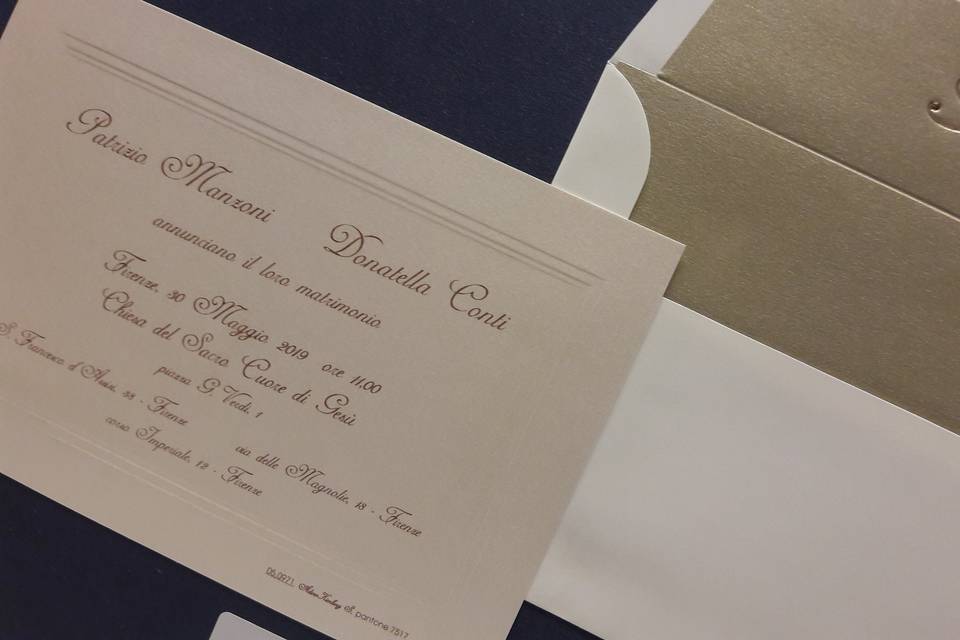 Patrizio Manzoni Donatella Conti
annunciano il loro matrimonio
Firenze, 30 Maggio 2019 ore 11,00
Chiesa del Sacro Cuore di Gesù
piazza G. Verdi, 1
S. Francesco d'Assisi, 88 - Firenze via delle Magnolie, 18 - Firenze
corso Imperiale, 12 - Firenze
06.0971 S. pantone 7517